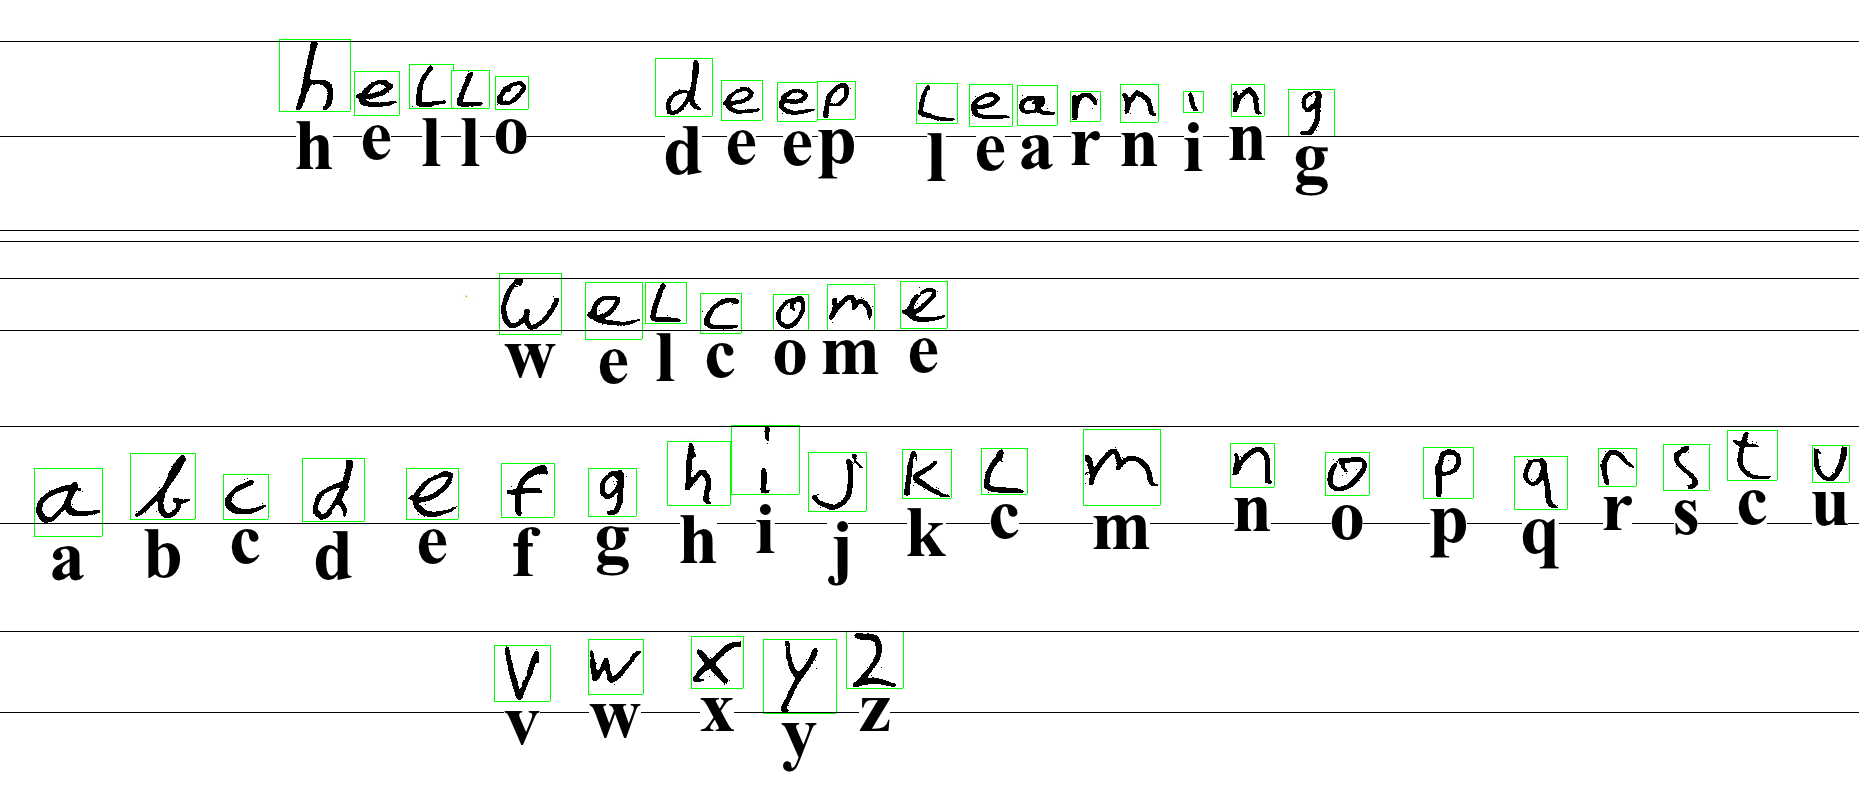 hello deep Learning
h e l l o d e e p l e a r n i n g
welcome
w e l c o m e
a b c d e f g h i j k L m n o p q r s t u
a b c d e f g h i j k c m n o p q r s c u
v w x y z
v w x y z